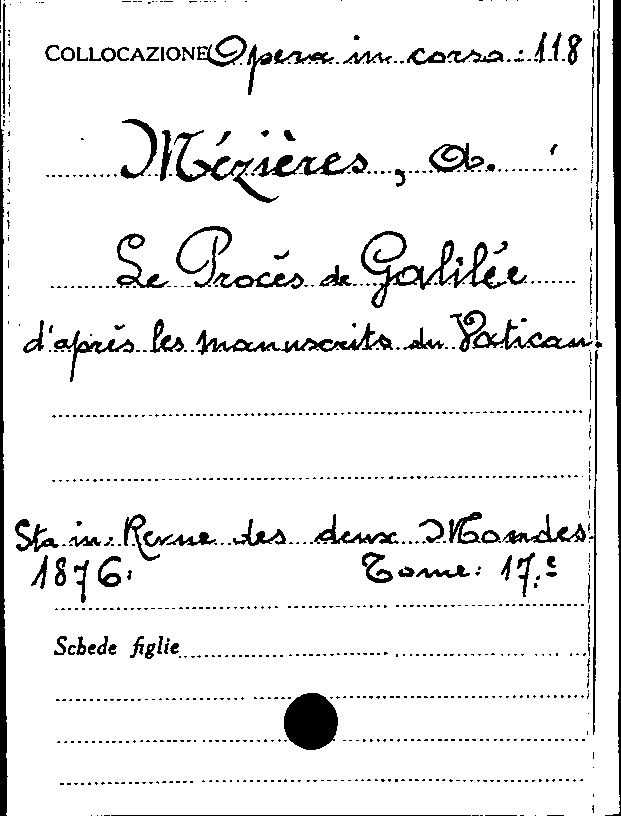 COLLOCAZIONE Opera in corso: 118
Mézières, A.
Le Procès de Galilée
d'après les manuscrits du Vatican.
Sta in: Revue des deux Mondes.
1876. Tome: 17.e
Schede figlie